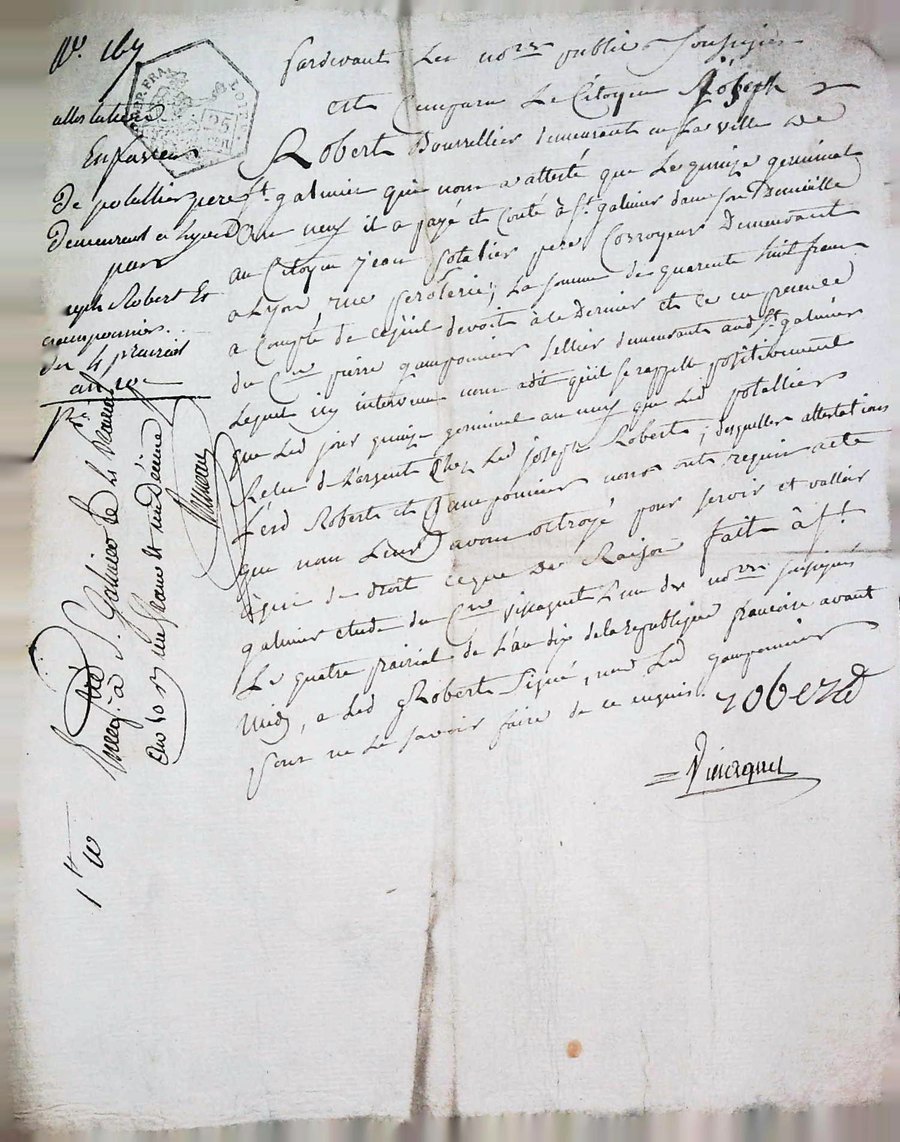 No. 167
attestation
En faveur
de potallier pere
demeurant a Lyon
par
Joseph Robert et
gamponnier
du 4 prairial
an 10e
REP. FRA.
25
Pardevant Les nores publics soussignés
est Comparu Le Citoyen Joseph
Robert Bourrellier demeurant en La ville de
St. galmier qui nous a attesté que Le quinze germinal
an neuf il a payé et Conté à St. galmier dans son Domicille
au Citoyen jean potalier pere Corroyeur Demeurant
a Lyon rue ; La somme de quarente huit francs
a Compte de ce qu'il devoit à Ce Dernier et ce en presence
du Cen pierre gamponnier sellier demeurant aud. St. galmier
Lequel icy intervenu nous a dit qu'il se rappelle positivement
que Led jour quinze germinal an neuf que Led potallier
Reçu de L'argent Chez Led joseph Robert ; desquelles attestations
Lesd Robert et Gamponnier nous ont requis acte
que nous Leurs avons octroyé pour servir et valloir
à qui de droit Ce que de Raison fait à St.
galmier etude du Cen Vincquet L'un des nores soussignés
Le quatre prairial de L'an dix de la republique francoise avant
midy, a Led Robert Signé, non Led gamponnier
pour ne Le savoir faire de ce enquis.
robert
Enreg. à St. Galmier le 4 Prairial
an 10 reçu un franc et un Décime